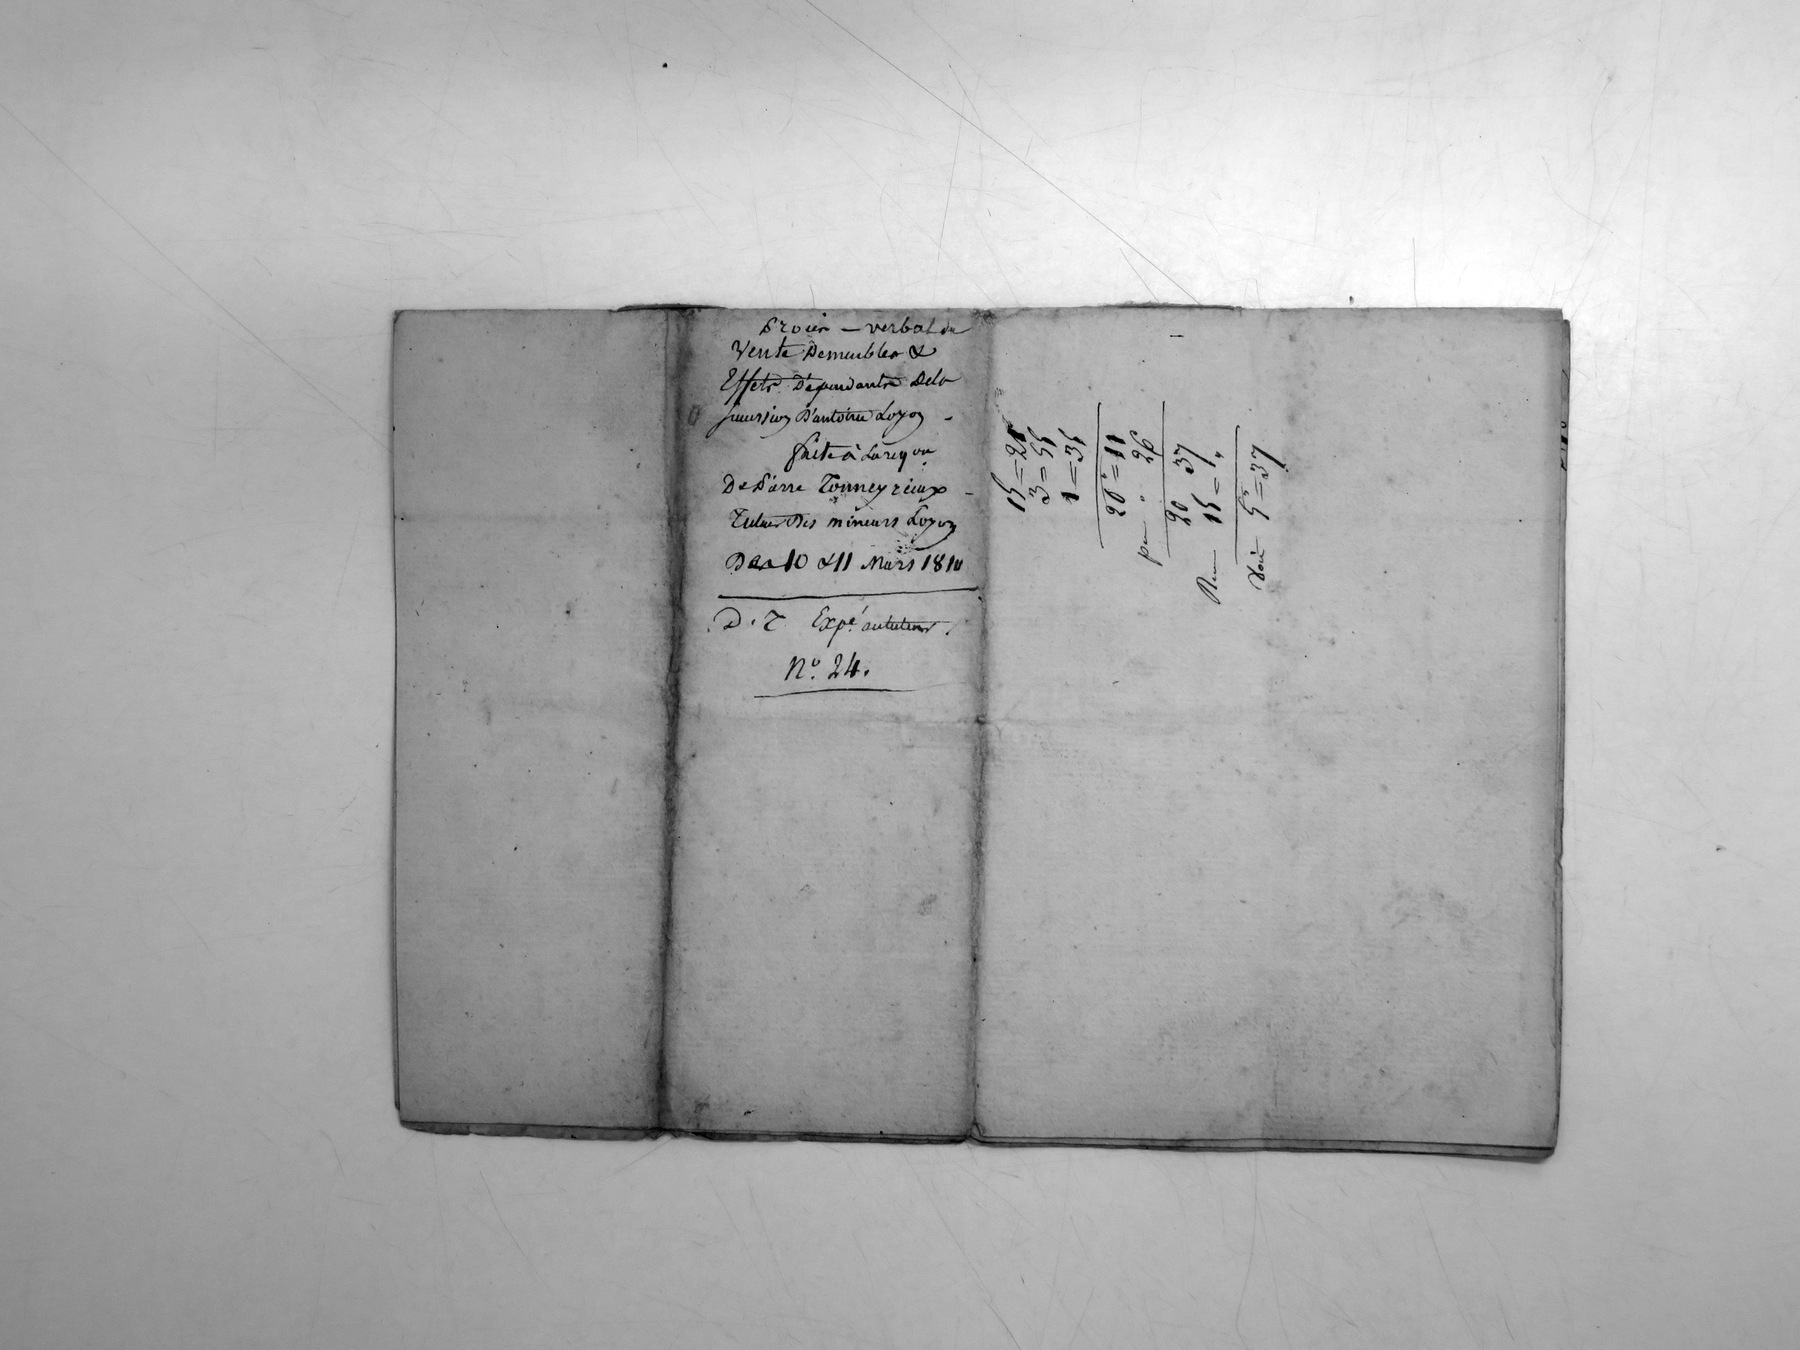 Procès - verbal de
Vente De meubles &
Effets Dépendants Dela
succession D'antoine Loyon -
faite à La req.on
De Pierre Tonneyrieux -
Tuteur Des mineurs Loyon
Des 10 & 11 Mars 1810
D. T. Expé. au tuteur.
N.o 24.
15 = 21
3 = 55
1 = 35
20 = 11
" 26
20 37
15 = "
5 = 37